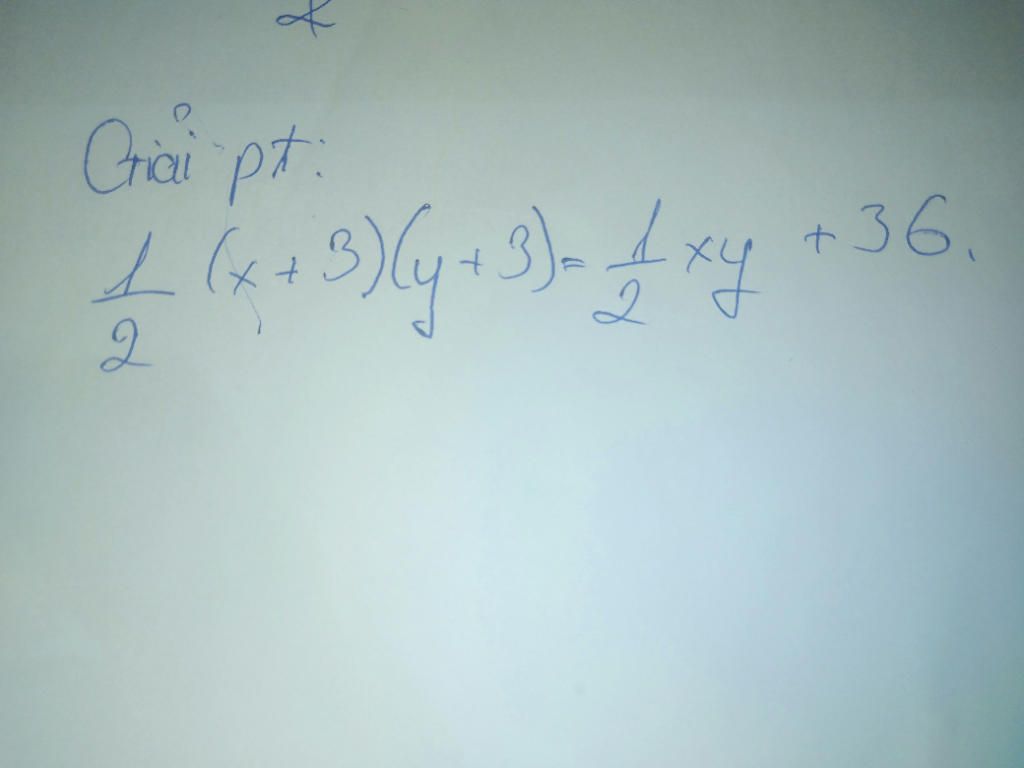 Giải pt:
1/2 (x + 3)(y + 3) = 1/2 xy + 36.